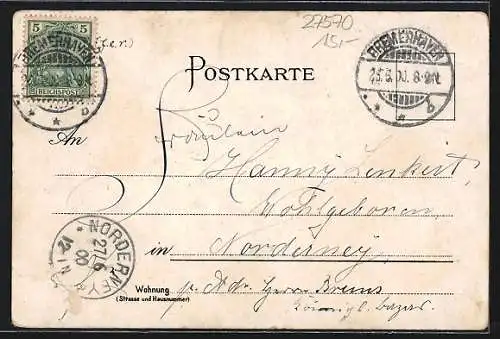 27570
15,-
5 5
REICHSPOST
BREMERHAVEN
BREMERHAVEN
25.6.00. 8-9N.
* b
POSTKARTE
An
Fräulein
Hanny Lenkert,
Wohlgeboren
in Norderney,
NORDERNEY
27/6
00
12-1N
Wohnung p. Adr. Herrn Bruns
(Strasse und Hausnummer)
Königl. Bazar.